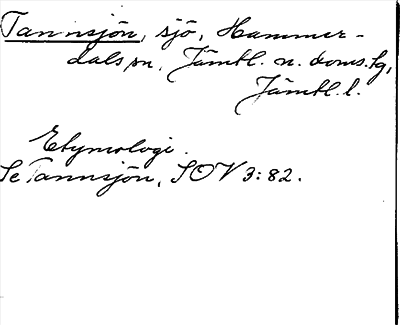 Tannsjön, sjö, Hammer-
dals sn, Jämtl. n. doms.fg,
Jämtl. l.
Etymologi.
Se Tannsjön, SOV 3:82.